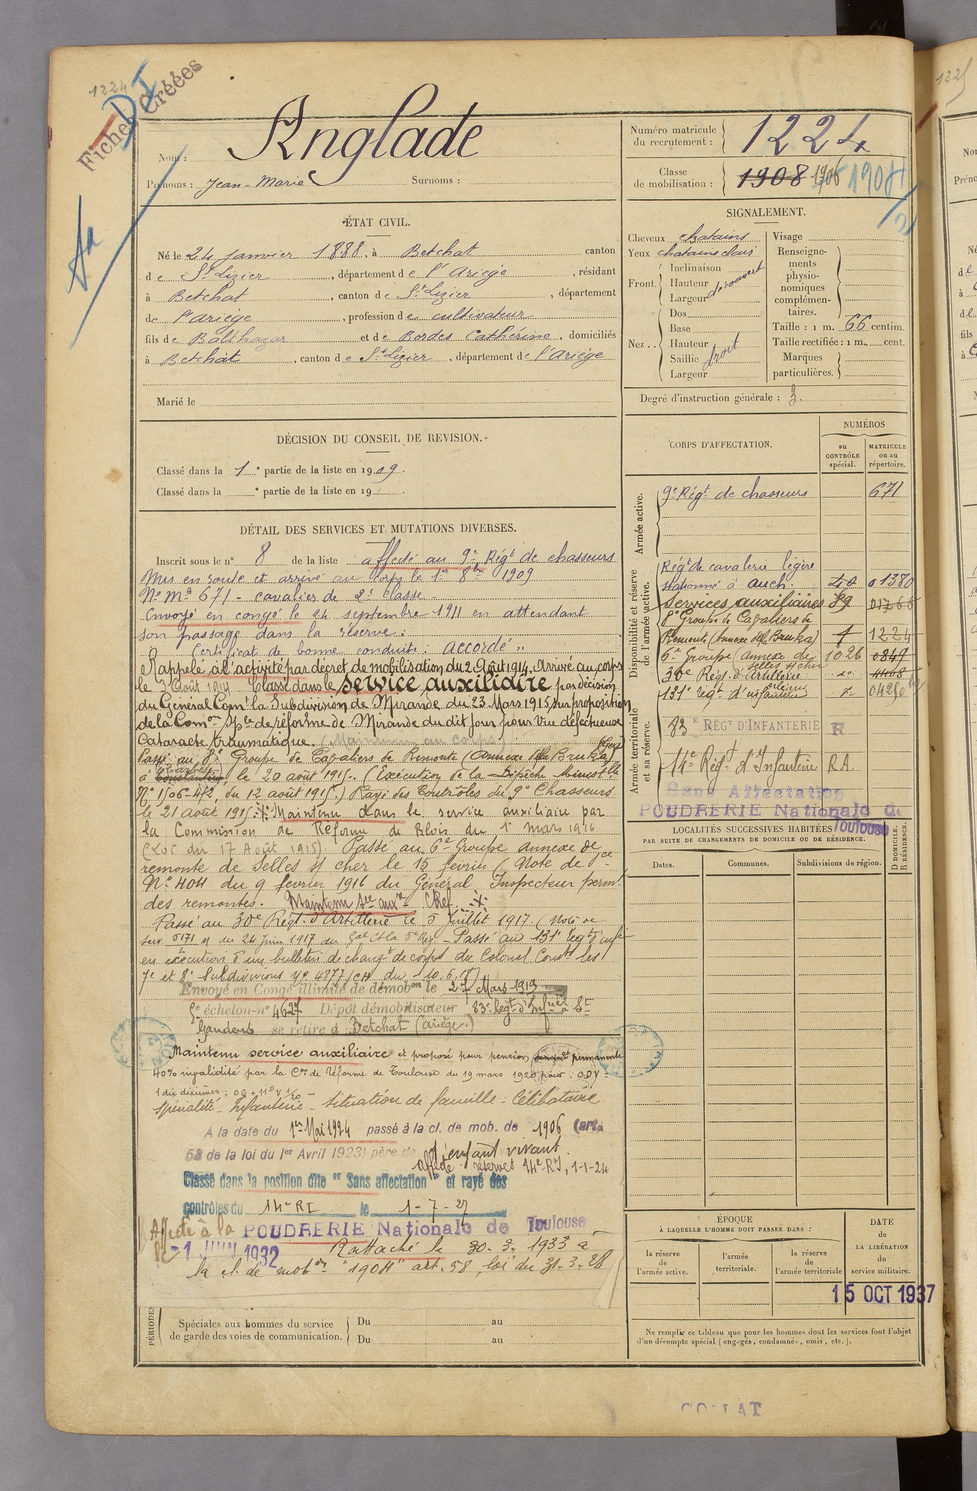 1224
Fiches Créées
DI
Nom : Anglade
Prénoms : Jean-Marie Surnoms :
Numéro matricule du recrutement : 1224
Classe de mobilisation : 1908 1906 1904
ÉTAT CIVIL.
Né le 24 janvier 1888, à Betchat canton
de St Lizier, département de l'Ariège, résidant
à Betchat, canton de St Lizier, département
de l'ariège, profession de cultivateur
fils de Balthazar et de Bordes Catherine, domiciliés
à Betchat, canton de St Lizier, département de l'Ariège
Marié le
SIGNALEMENT.
Cheveux chatains
Yeux chatains clairs
Front. Inclinaison
Hauteur découvert
Largeur
Nez . . Dos
Base
Hauteur droit
Saillie
Largeur
Visage
Renseignements physionomiques complémentaires.
Taille : 1 m. 66 centim.
Taille rectifiée : 1 m. cent.
Marques particulières.
Degré d'instruction générale : 3.
DÉCISION DU CONSEIL DE REVISION.
Classé dans la 1e partie de la liste en 1909.
Classé dans la e partie de la liste en 19
DÉTAIL DES SERVICES ET MUTATIONS DIVERSES.
Inscrit sous le no 8 de la liste affecté au 9e Régt de chasseurs
Mis en route et arrivé au corps le 1er 8bre 1909
No Mle 671 - cavalier de 2e classe
Envoyé en congé le 24 septembre 1911 en attendant
son passage dans la réserve.
Certificat de bonne conduite : accordé "
Rappelé à l'activité par décret de mobilisation du 2 Août 1914. Arrivé au corps
le 3 Août 1914. Classé dans le service auxiliaire par décision
du Général Comt la Subdivision de Mirande du 23 Mars 1915, sur proposition
de la Comon Sple de réforme de Mirande du dit jour pour vue défectueuse
Cataracte traumatique. (Maintenu au corps)
Passé au 8e Groupe de Cavaliers de Remonte
à Tarbes Constantine le 20 août 1915. (Exécution de la Dépêche Minelle
No 1506-4/2, du 12 août 1915.) Rayé des Contrôles du 9e Chasseurs
le 21 août 1915. Maintenu dans le service auxiliaire par
la Commission de Réforme de Blois du 1er mars 1916
(Loi du 17 Août 1915) Passé au 6e Groupe annexe de
remonte de Selles s/ cher le 15 février (Note de
No 404 du 9 février 1916 du Général Inspecteur permt
des remontes. Maintenu
Passé au 30e Régt d'Artillerie le 5 juillet 1917. (Note de
serv 5171 du 24 Juin 1917 du Gal Ct la 5e Reg - Passé au 131e Regt d'infie
en exécution d'un bulletin de changt de corps du Colonel Comt les
7e et 8e Subdivisions No 4877/CH du 10.6.18
Envoyé en Congé illimité de démobon le 27 Mars 1919
5e échelon - no 4627 Dépôt démobilisateur 83e Régt d'Infrie à St
Gaudens se retire à Betchat (ariège)
Maintenu service auxiliaire et proposé pour pension permanente
40% invalidité par la Con de Réforme de Toulouse du 19 mars 1920 pour : OD V
1 dix dixièmes ; OG
Spécialité - Infanterie - Situation de famille - Célibataire
A la date du 1er Mai 1924 passé à la cl. de mob. de 1906 (art.
58 de la loi du 1er Avril 1923) père de 1 enfant vivant.
affecté réserves 14e RI, 1-1-24
Classé dans la position dite "Sans affectation" et rayé des
contrôles du 14e RI le 1-7-27
Affecté à la POUDRERIE Nationale de Toulouse
le 1 JUIN 1932 Rattaché le 30.3.1933 à
la cl. de mobon "1904" art. 58, loi du 31.3.28
CORPS D'AFFECTATION.
NUMÉROS
au CONTRÔLE spécial.
MATRICULE ou au répertoire.
Armée active.
9e Régt de chasseurs 671
Disponibilité et réserve de l'armée active.
Régt de cavalerie légère
stationné à Auch. 01380
services auxiliaires 89
8e Groupe de Cavaliers de
Remonte 1224
6e Groupe (annexe de Selles s/Cher 1026 0849
30e Rég. d'Artillerie
131e regt d'infanterie
Armée territoriale et sa réserve.
83 e RÉGt D'INFANTERIE R
14e Régt d'Infanterie RA.
Sans Affectation
POUDRERIE Nationale de Toulouse
LOCALITÉS SUCCESSIVES HABITÉES
PAR SUITE DE CHANGEMENTS DE DOMICILE OU DE RÉSIDENCE.
Dates. Communes. Subdivisions de région. D DOMICILE. R RÉSIDENCE.
ÉPOQUE
À LAQUELLE L'HOMME DOIT PASSER DANS :
la réserve de l'armée active. l'armée territoriale. la réserve de l'armée territoriale
DATE DE LA LIBÉRATION du service militaire.
15 OCT 1937
Ne remplir ce tableau que pour les hommes dont les services font l'objet
d'un décompte spécial (engagés, condamnés, omis, etc.).
PÉRIODES
Spéciales aux hommes du service
de garde des voies de communication.
Du au
Du au